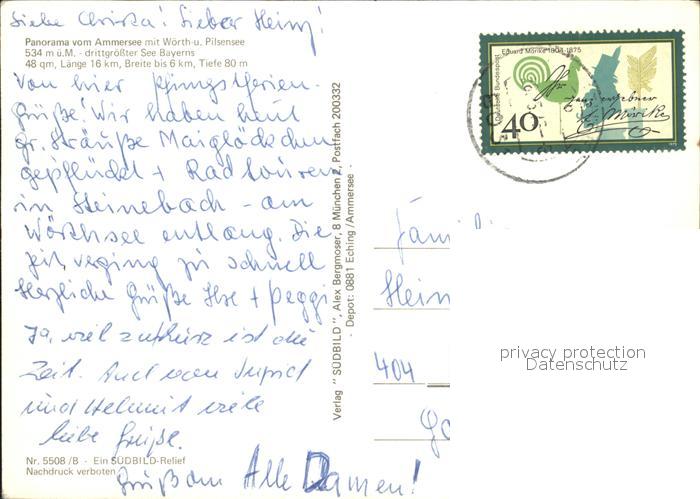 Liebe Christa! Lieber Heinz!
Panorama vom Ammersee mit Wörth-u. Pilsensee
534 m ü.M. - drittgrößter See Bayerns
48 qm, Länge 16 km, Breite bis 6 km, Tiefe 80 m
Von hier Pfingstferien-
Grüße! Wir haben heut
gr. Sträuße Maiglöckchen
gepflückt + Radtouren
in Steinebach - am
Wörthsee entlang. Die
Zeit verging zu schnell
Herzliche Grüße Ilse + Peggi
Ja, viel zu kurz ist die
Zeit. Auch von
und Helmut viele
liebe Grüße.
Nr. 5508/B · Ein SÜDBILD-Relief
Nachdruck verboten
Gruß an Alle Damen!
Verlag "SÜDBILD", Alex Bergmoser, 8 München 2, Postfach 200332
· Depot: 0881 Eching/Ammersee ·
Deutsche Bundespost
Eduard Mörike 1804-1875
ganz ergebner
E. Mörike
40
Fami
Hein
404
privacy protection
Datenschutz